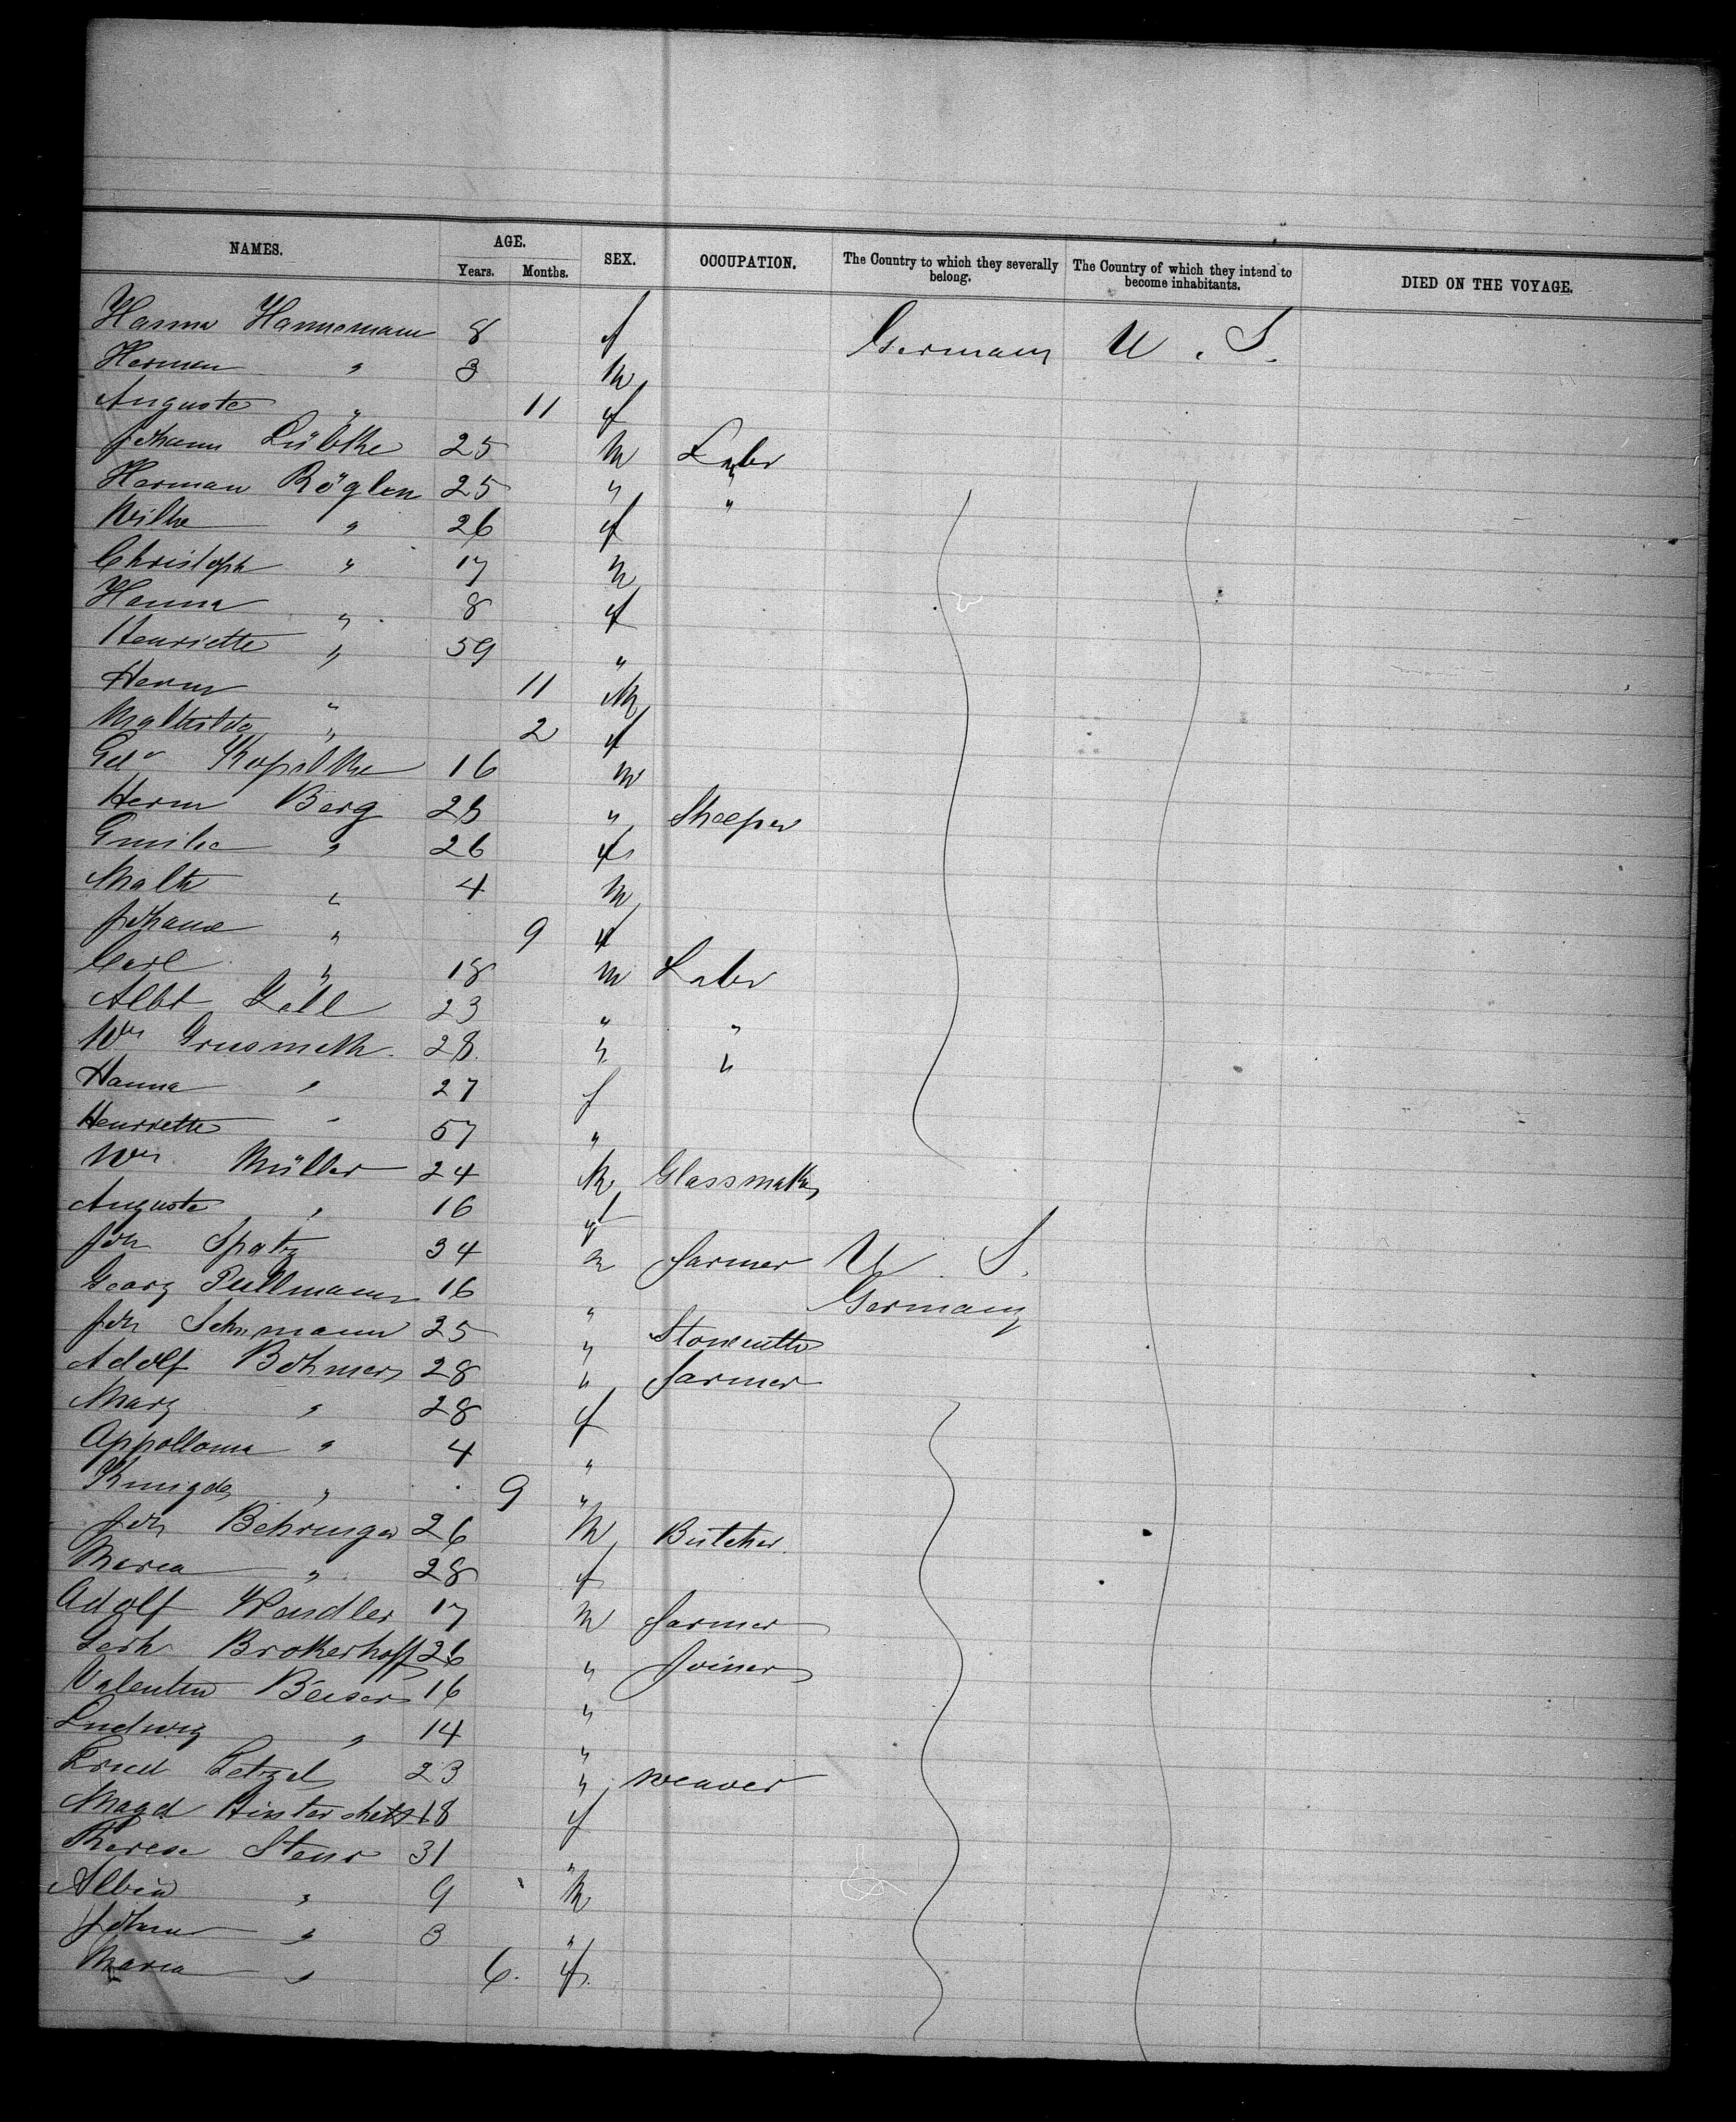 NAMES. AGE. Years. Months. SEX. OCCUPATION. The Country to which they severally belong. The Country of which they intend to become inhabitants. DIED ON THE VOYAGE.
Hanna Hannemann 8 f Germany U. S.
Herman " 3 M
Auguste " 11 f
Johann Lübke 25 M Labr
Herman Röglen 25 " "
Wilhe " 26 f
Christoph " 17 M
Hanna " 8 f
Henriette " 59 "
Herm " 11 M
Mathilda " 2 f
16 m
Herm Berg 25 "
Emilie " 26 f
Malte " 4 M
Johana " 9 f
Carl " 18 m Labr
Albt 23 " "
Wm 28 " "
Hanna " 27 f
Henriette " 57 "
Wm Müller 24 M Glassmaker
Auguste " 16 f
Joh Spatz 34 m farmer U. S.
Georg Pullmann 16 " Germany
Joh 25 " Stonecutter
Adolf Bohmer 28 " farmer
Marg " 28 f
Appollonia " 4 "
" 9 "
Joh Behringer 26 M Butcher
Maria " 28 f
Adolf Wendler 17 M farmer
Gerh Brokerhoff 26 " Joiner
Valentin Beiser 16 "
Ludwig " 14 "
23 " weaver
Magd 18 f
Therese 31 "
Albin " 9 M
Johann " 3 "
Maria " 6 f